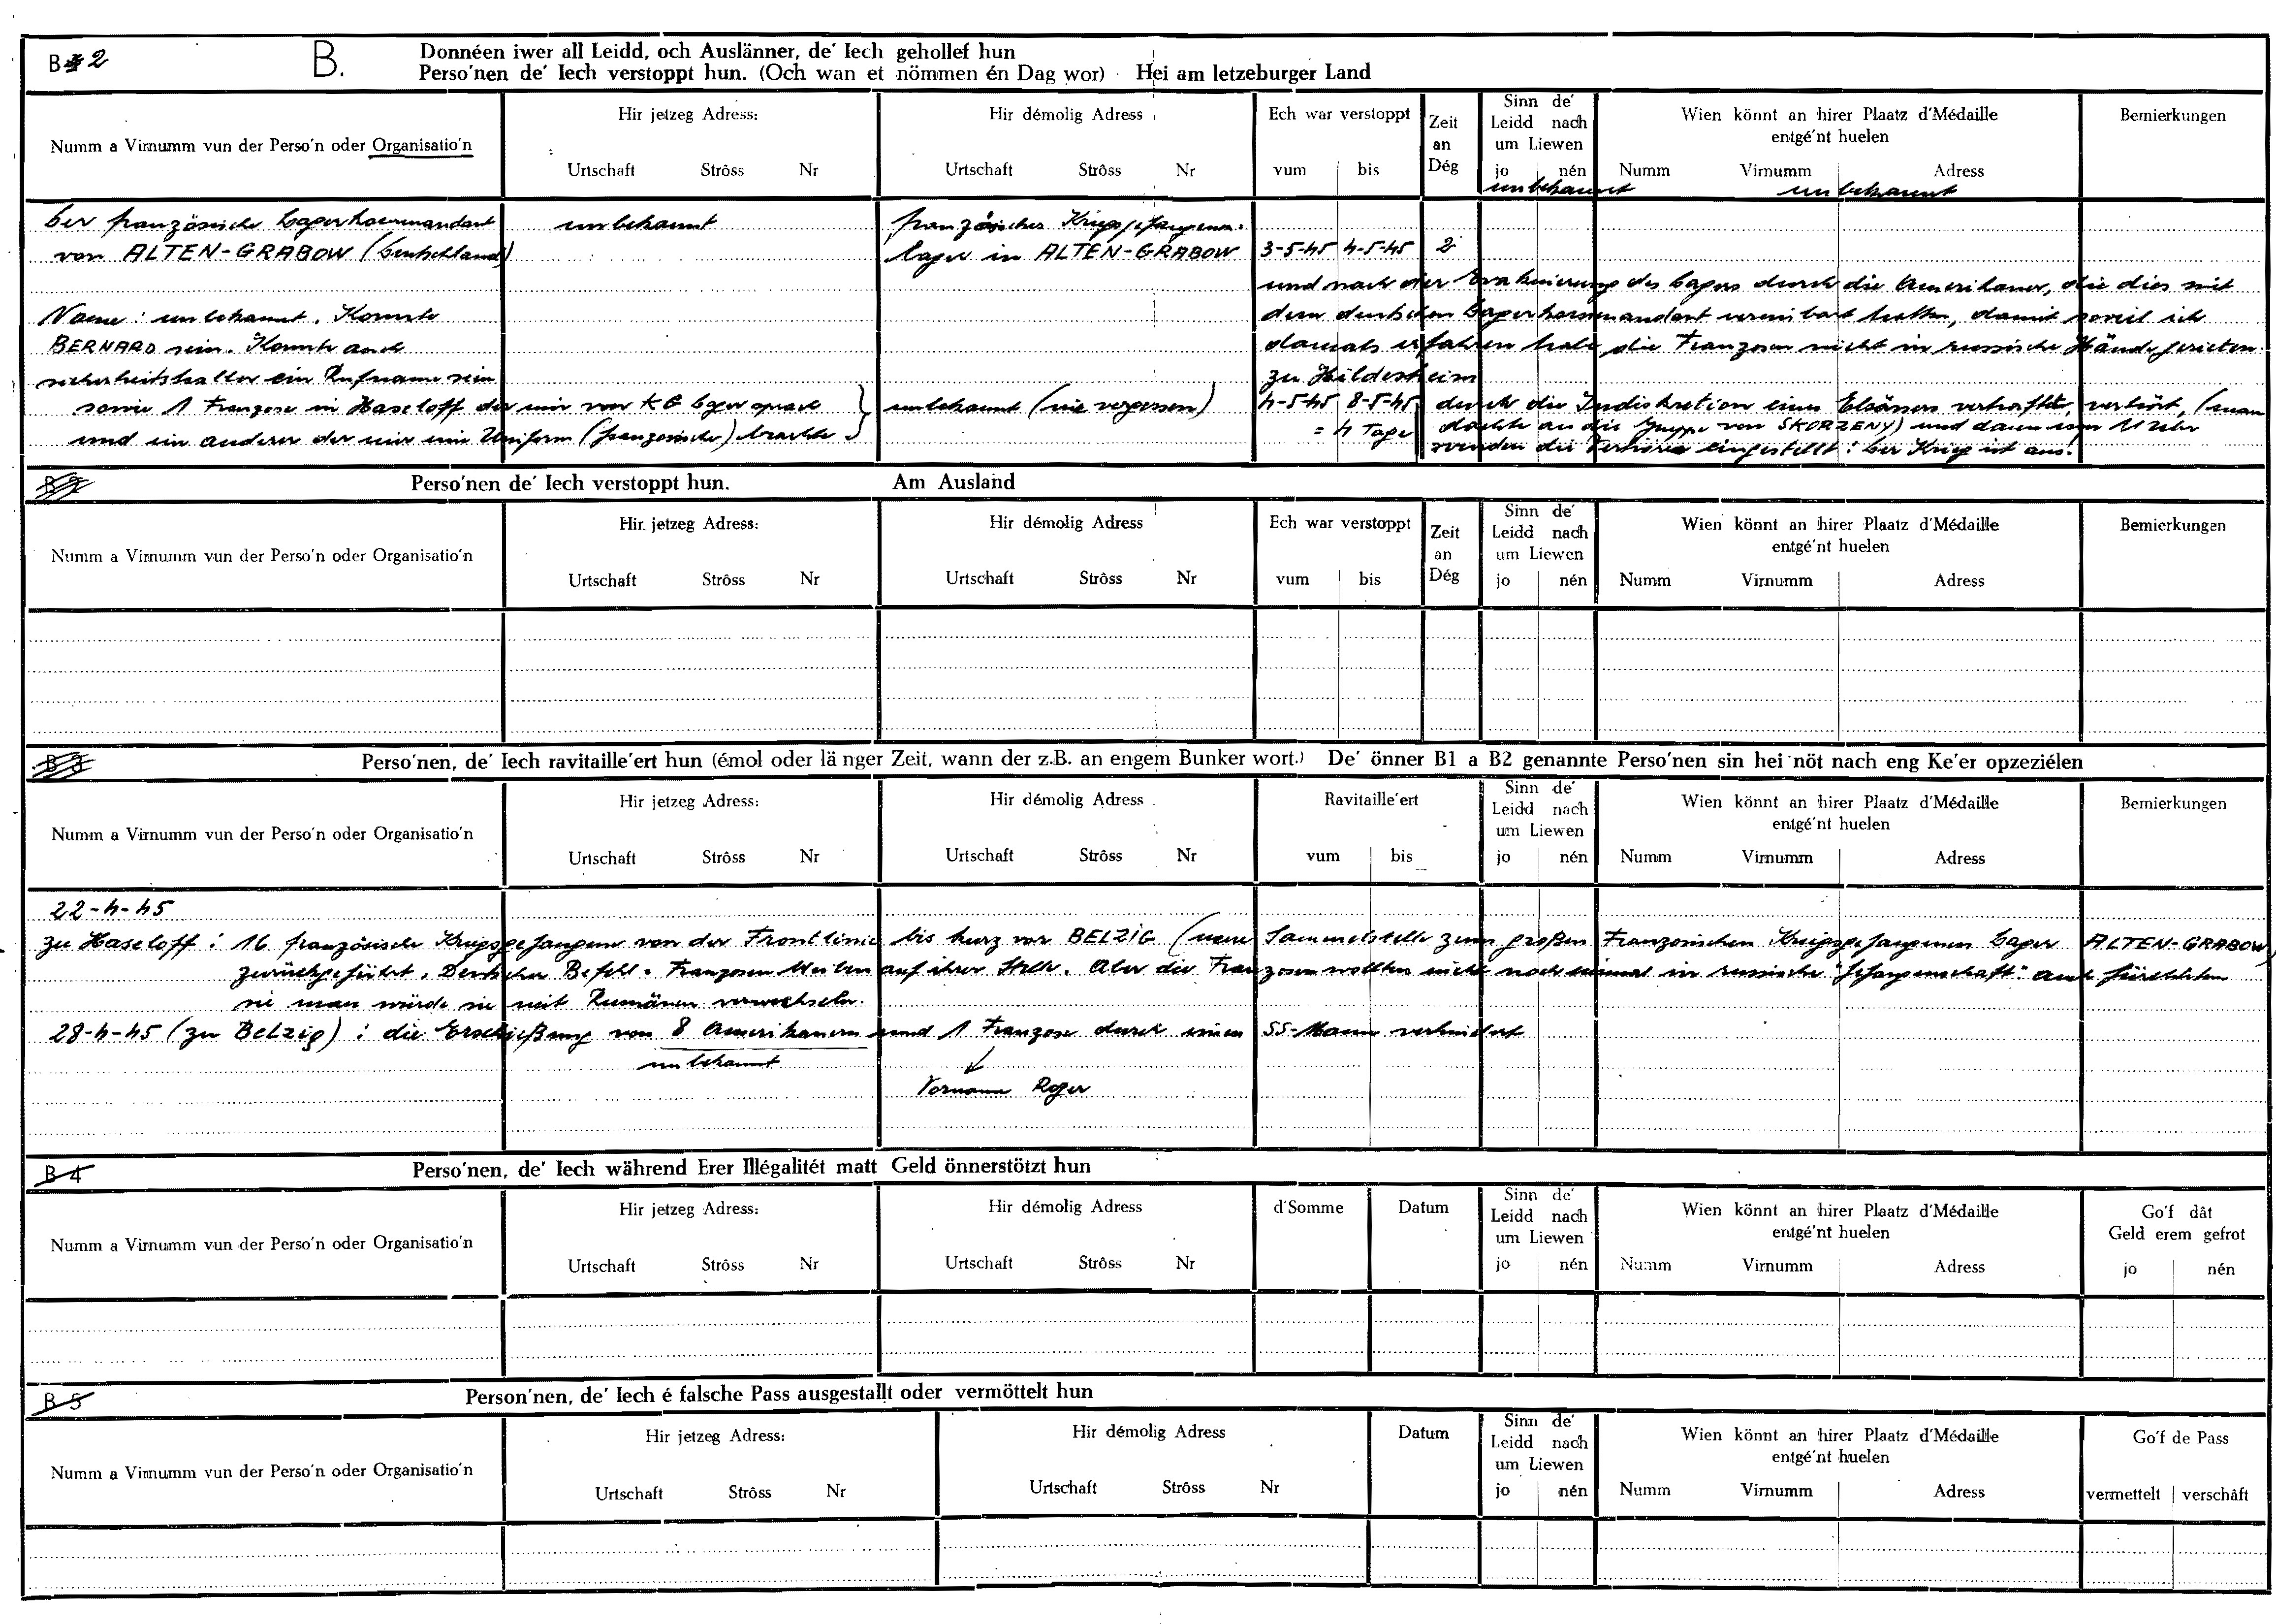 B 2 B. Donnéen iwer all Leidd, och Auslänner, de' Iech gehollef hun
Perso'nen de' Iech verstoppt hun. (Och wan et nömmen én Dag wor) Hei am letzeburger Land
Numm a Virnumm vun der Perso'n oder Organisatio'n
Hir jetzeg Adress:
Urtschaft Strôss Nr
Hir démolig Adress
Urtschaft Strôss Nr
Ech war verstoppt
vum bis
Zeit
an
Dég
Sinn de'
Leidd nach
um Liewen
jo nén
Wien könnt an hirer Plaatz d'Médaille
entgé'nt huelen
Numm Virnumm Adress
Bemierkungen
unbekannt unbekannt
Der französische Lagerkommandant unbekannt französischer Kriegsgefangenen-
von ALTEN-GRABOW (Deutschland) lager in ALTEN-GRABOW 3-5-45 4-5-45 2
und nach der Evakuierung des Lagers durch die Amerikaner, die dies mit
Name: unbekannt. Konnte dem deutschen Lagerkommandant vereinbart hatten, damit soviel ich
BERNARD sein. Konnte auch damals erfahren habe die Franzosen nicht in russische Hände gerieten.
sicherheitshalber ein Rufname sein zu Hildesheim
sowie 1 Franzose in Haseloff der mir vom KG Lager sprach unbekannt (nie vergessen) 4-5-45 8-5-45 durch die Indiskretion eines Elsässers verhaftet, verhört, (man
und ein anderer der mir eine Uniform (französische) brachte = 4 Tage dachte an die Gruppe von SKORZENY) und dann um 11 Uhr
wurden die Verhöre eingestellt: Der Krieg ist aus!
Perso'nen de' Iech verstoppt hun. Am Ausland
Numm a Virnumm vun der Perso'n oder Organisatio'n
Hir jetzeg Adress:
Urtschaft Strôss Nr
Hir démolig Adress
Urtschaft Strôss Nr
Ech war verstoppt
vum bis
Zeit
an
Dég
Sinn de'
Leidd nach
um Liewen
jo nén
Wien könnt an hirer Plaatz d'Médaille
entgé'nt huelen
Numm Virnumm Adress
Bemierkungen
B 3 Perso'nen, de' Iech ravitaille'ert hun (émol oder länger Zeit, wann der z.B. an engem Bunker wort.) De' önner B1 a B2 genannte Perso'nen sin hei nöt nach eng Ke'er opzeziélen
Numm a Virnumm vun der Perso'n oder Organisatio'n
Hir jetzeg Adress:
Urtschaft Strôss Nr
Hir démolig Adress
Urtschaft Strôss Nr
Ravitaille'ert
vum bis
Sinn de'
Leidd nach
um Liewen
jo nén
Wien könnt an hirer Plaatz d'Médaille
entgé'nt huelen
Numm Virnumm Adress
Bemierkungen
22-4-45
zu Haseloff: 16 französische Kriegsgefangene von der Frontlinie bis kurz vor BELZIG (neue Sammelstelle zum großen Französischen Kriegsgefangenen Lager ALTEN-GRABOW)
zurückgeführt. Deutscher Befehl = Franzosen bleiben auf ihrer Stelle. Aber die Franzosen wollten nicht noch einmal in russische "Gefangenschaft" auch fürchteten
sie man würde sie mit Rumänen verwechseln.
28-4-45 (zu Belzig): die Erschießung von 8 Amerikanern und 1 Franzose durch einen SS-Mann verhindert
unbekannt
Vorname Roger
B 4 Perso'nen, de' Iech während Erer Illégalitét matt Geld önnerstötzt hun
Numm a Virnumm vun der Perso'n oder Organisatio'n
Hir jetzeg Adress:
Urtschaft Strôss Nr
Hir démolig Adress
Urtschaft Strôss Nr
d'Somme
Datum
Sinn de'
Leidd nach
um Liewen
jo nén
Wien könnt an hirer Plaatz d'Médaille
entgé'nt huelen
Numm Virnumm Adress
Go'f dât
Geld erem gefrot
jo nén
B 5 Person'nen, de' Iech é falsche Pass ausgestallt oder vermöttelt hun
Numm a Virnumm vun der Perso'n oder Organisatio'n
Hir jetzeg Adress:
Urtschaft Strôss Nr
Hir démolig Adress
Urtschaft Strôss Nr
Datum
Sinn de'
Leidd nach
um Liewen
jo nén
Wien könnt an hirer Plaatz d'Médaille
entgé'nt huelen
Numm Virnumm Adress
Go'f de Pass
vermettelt verschâft